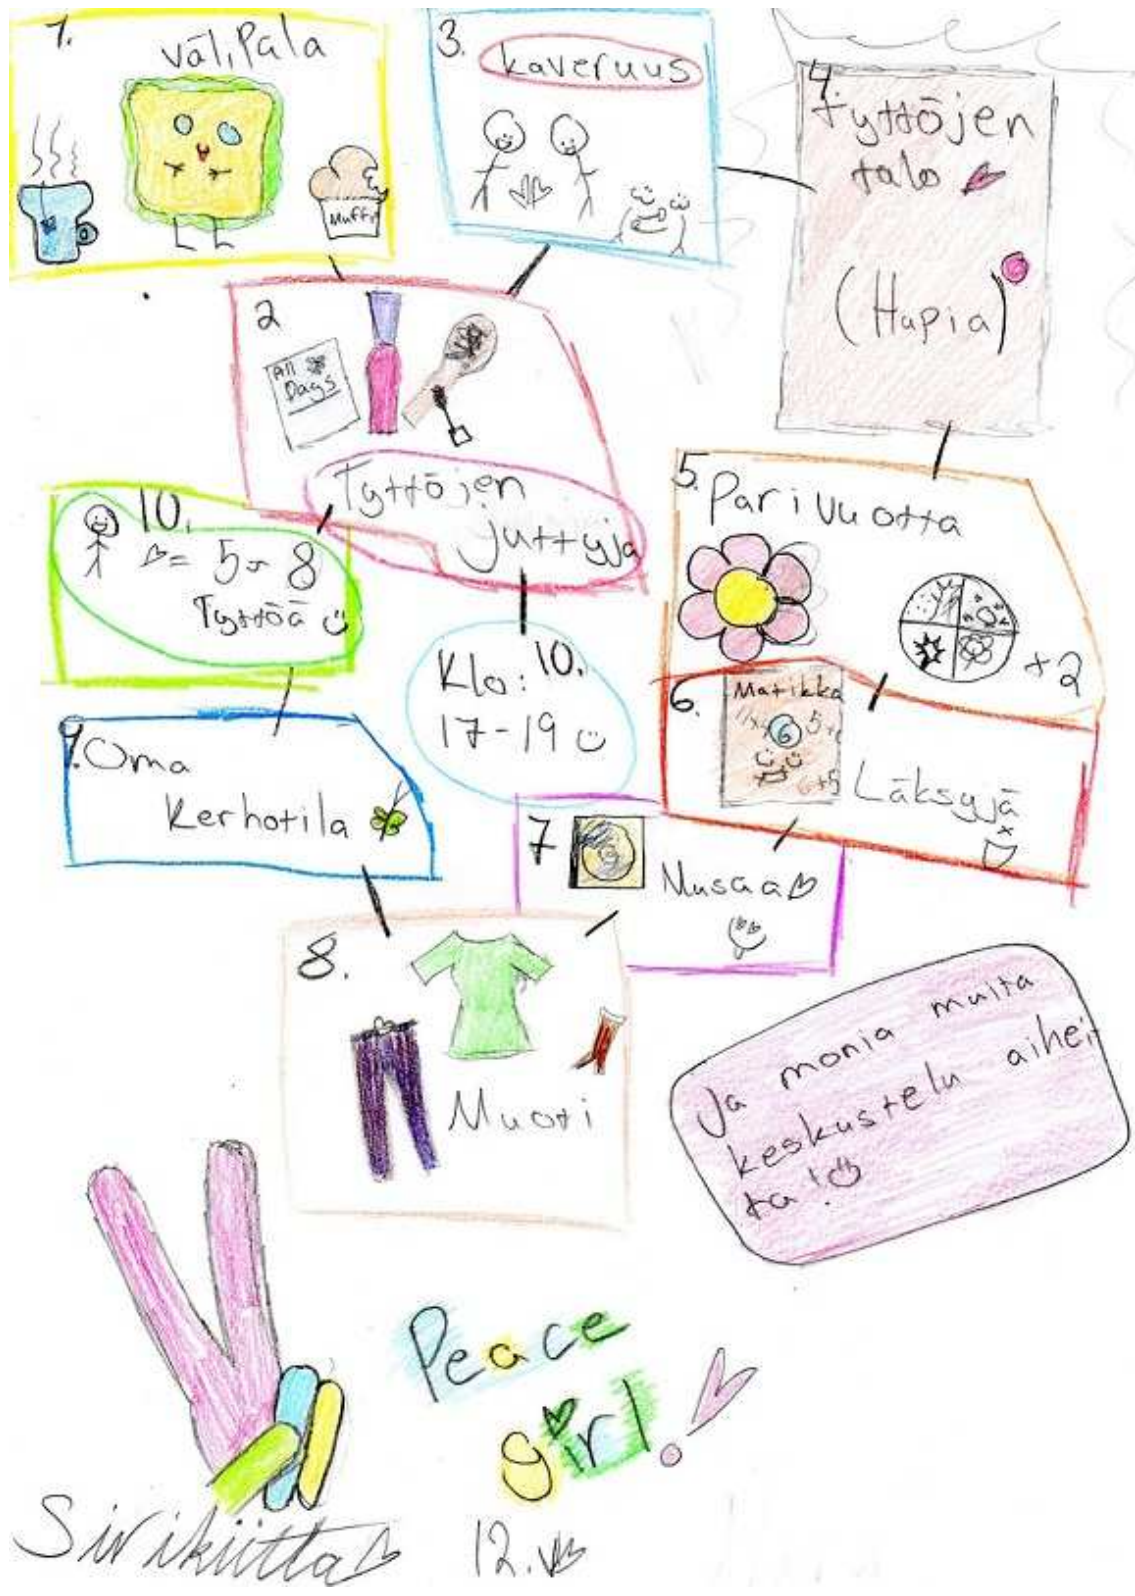 1.
välipala
Muffi
3.
kaveruus
4.
tyttöjen
talo
(Hapia)
2
All
Days
Tyttöjen
juttyja
5.
Pari vuotta
+2
10.
= 5-8
Tyttöä
Klo: 10.
17-19
6.
Matikka
6
Läksyjä
9.
Oma
Kerhotila
7
Musaa
8.
Muoti
Ja monia muita
keskustelu aihei
ta!
Peace
girl!
Sirikiitta
12.v